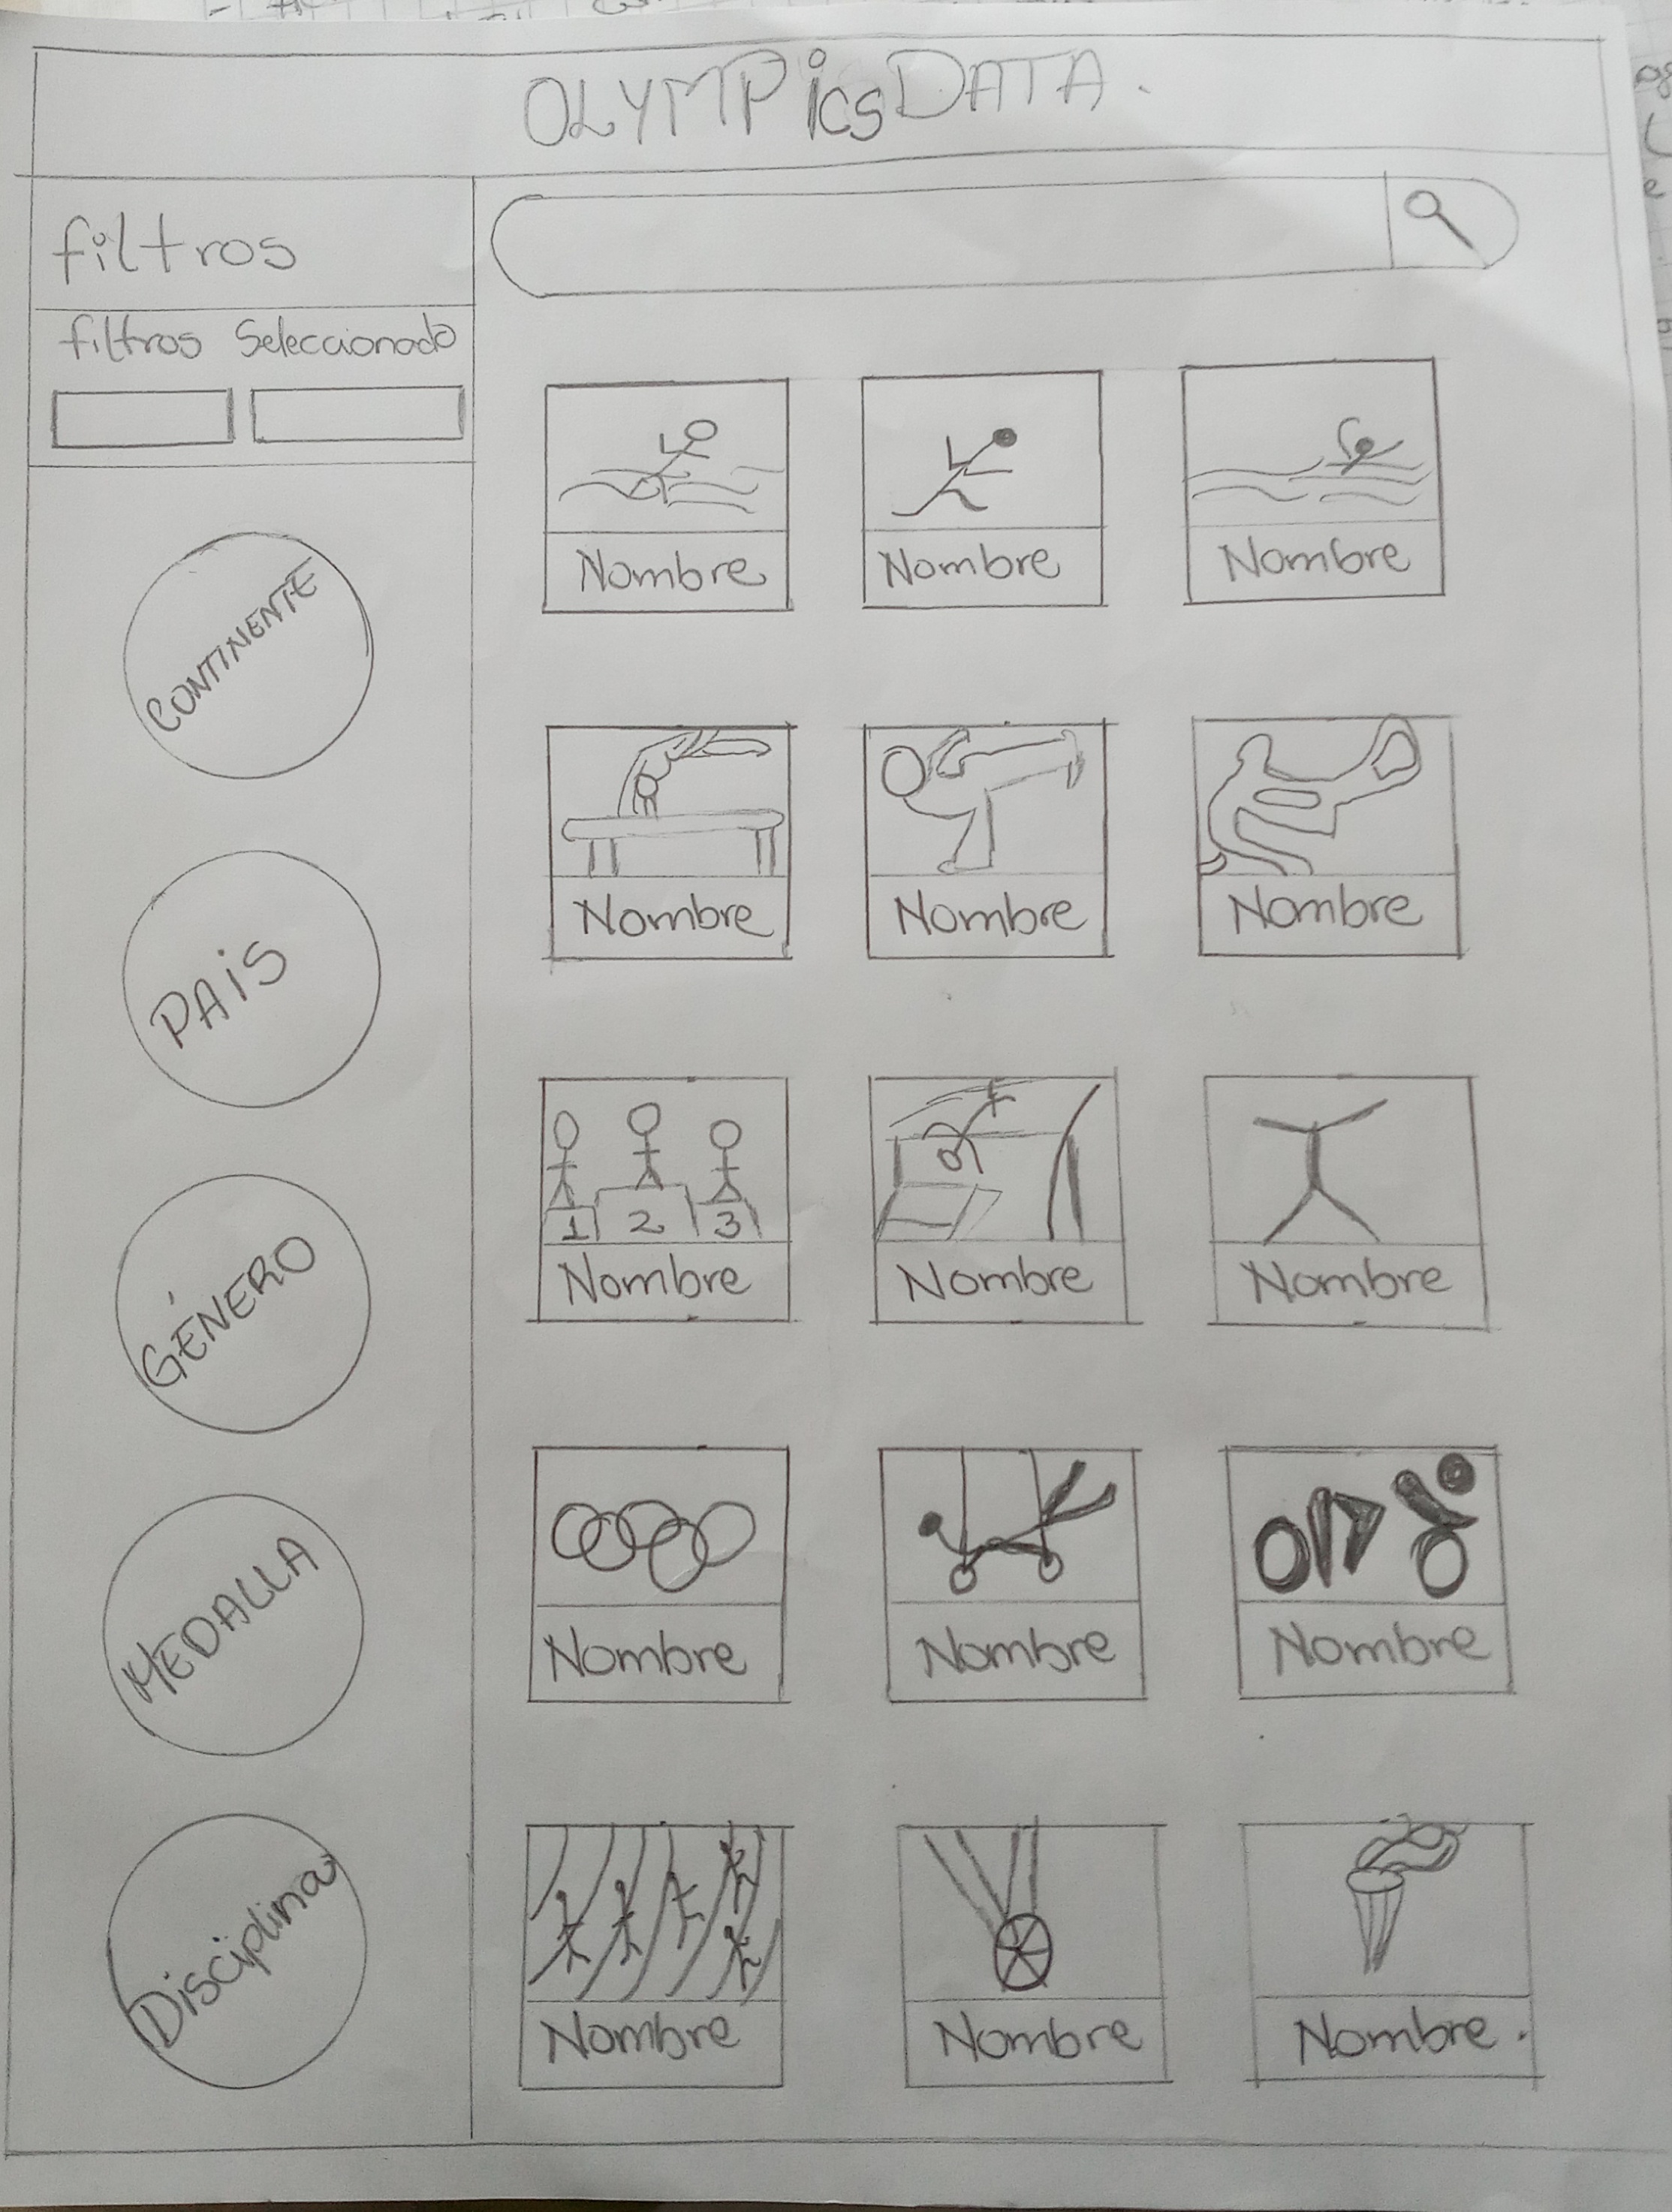 OLYMPicsDATA.
filtros
filtros Seleccionado
CONTINENTE
PAiS
GÉNERO
MEDALLA
Disciplina
Nombre Nombre Nombre
Nombre Nombre Nombre
1 2 3
Nombre Nombre Nombre
Nombre Nombre Nombre
Nombre Nombre Nombre.